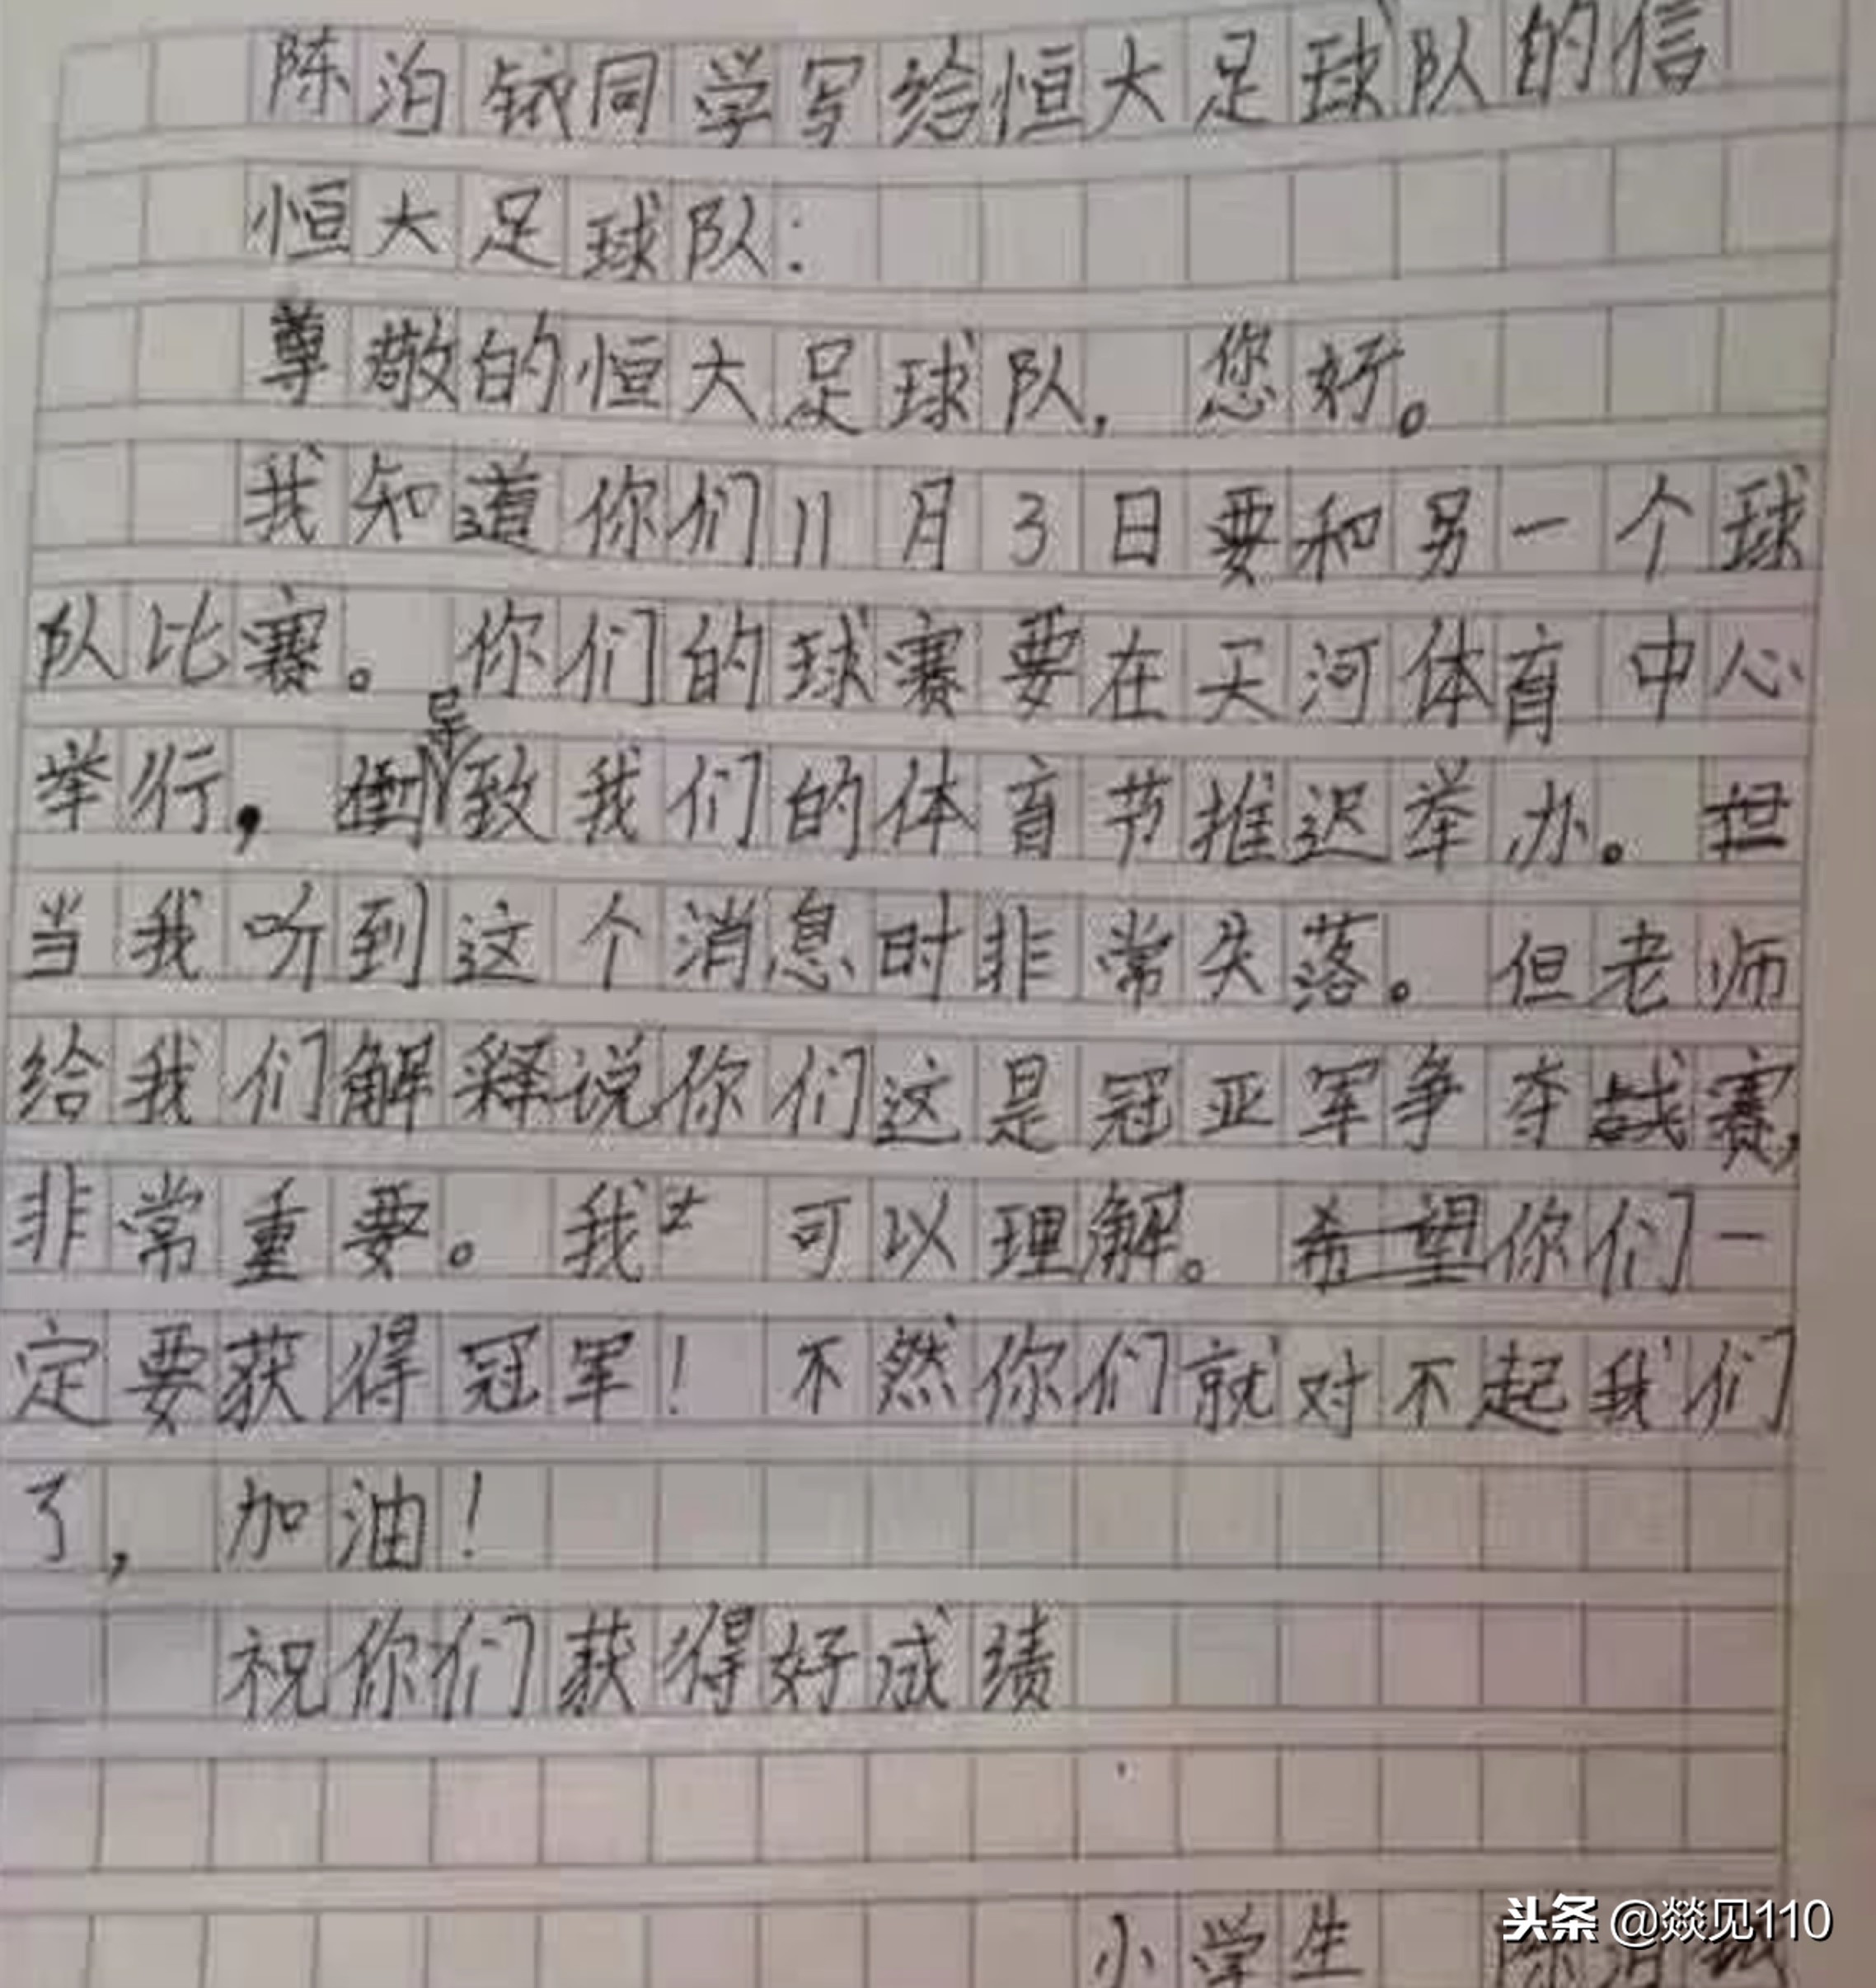 陈泊铱同学写给恒大足球队的信
恒大足球队：
尊敬的恒大足球队，您好。
我知道你们11月3日要和另一个球
队比赛。你们的球赛要在天河体育中心
举行，导致我们的体育节推迟举办。
当我听到这个消息时非常失落。但老师
给我们解释说你们这是冠亚军争夺战赛，
非常重要。我可以理解。希望你们一
定要获得冠军！不然你们就对不起我们
了，加油！
祝你们获得好成绩
小学生 陈泊
头条 @燚见110